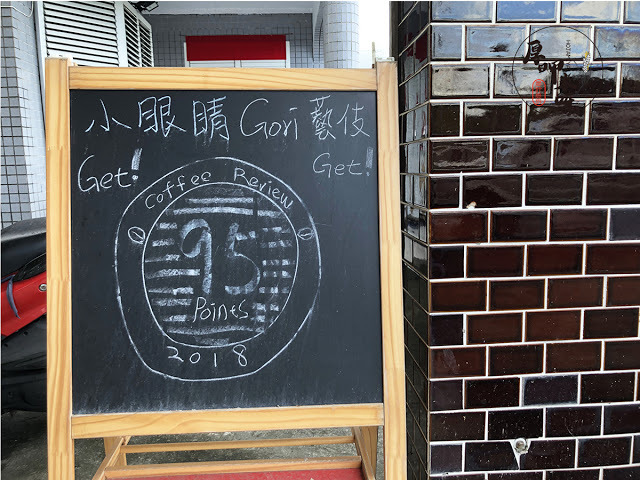 小眼睛 Gori 藝伎
Get! Get!
Coffee Review
95
Points
2018